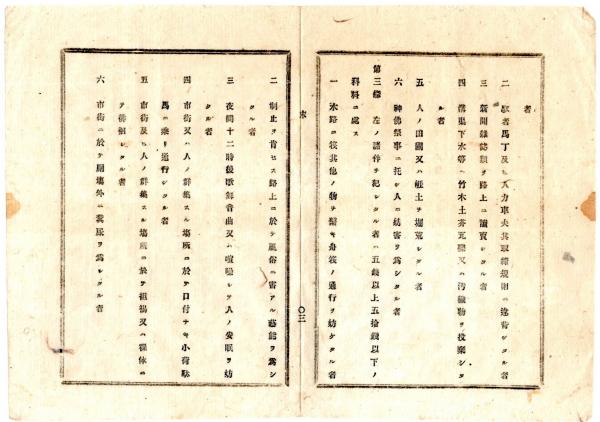 者
二 馭者馬丁及ヒ人力車夫其取締規則ニ違背シタル者
三 新聞雜誌類ヲ路上ニ讀賣シタル者
四 溝渠下水等ヘ竹木土芥瓦礫又ハ汚穢物ヲ投棄シタ
ル者
五 人ノ田園又ハ 土ヲ堀荒シタル者
六 神佛祭事ニ托シ人ニ妨害ヲ爲シタル者
第三條 左ノ諸件ヲ犯シタル者ハ五錢以上五拾錢以下ノ
科料ニ處ス
一 水路ニ筏其他ノ物ヲ繫キ舟筏ノ通行ヲ妨ケタル者
〇三
二 制止ヲ肯セス路上ニ於テ風俗ニ害アル藝能ヲ爲シ
タル者
三 夜間十二時後歌舞音曲又ハ喧噪シテ人ノ安眠ヲ妨
ケタル者
四 市街又ハ人ノ群集スル塲所ニ於テ口付ナキ小荷駄
馬ニ乘リ通行シタル者
五 市街及ヒ人ノ群集スル塲所ニ於テ袒裼又ハ裸体ニ
テ徘徊シタル者
六 市街ニ於テ厠塲外ニ糞尿ヲ爲シタル者